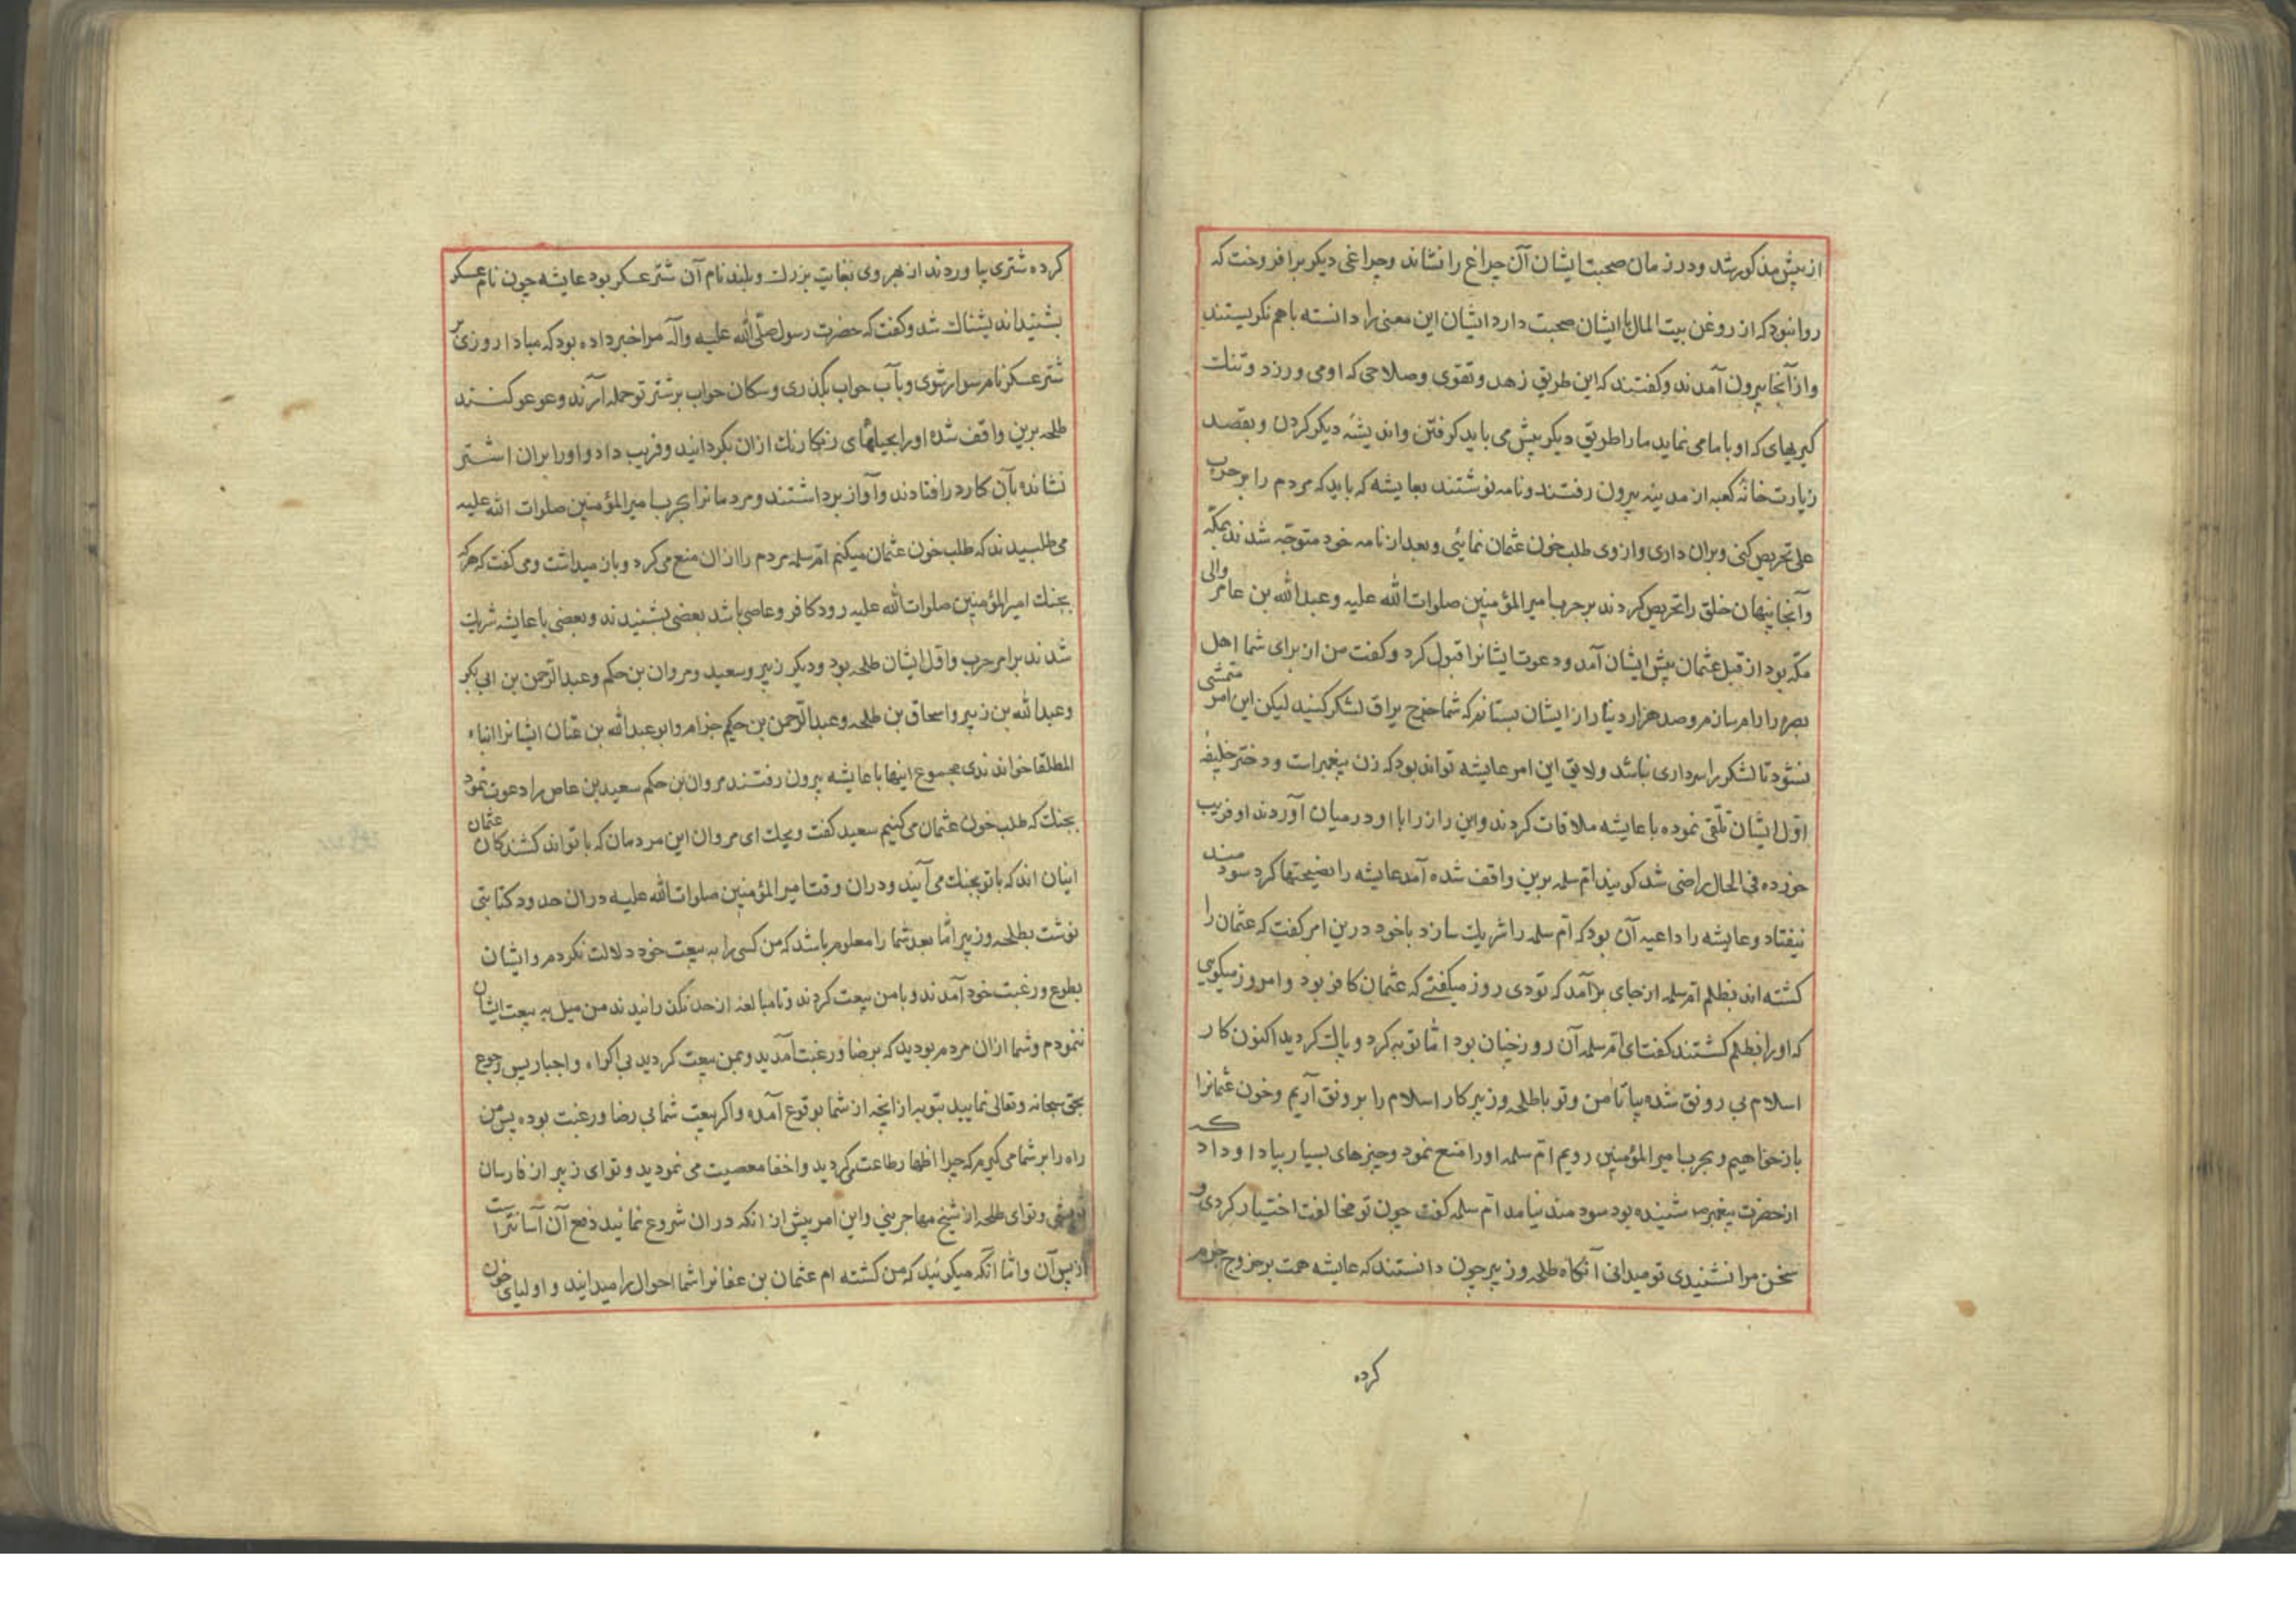 از پیش مذکور شد و در زمان صحبت ایشان آن چراغ را نشاند و چراغی دیکر برافروخت که
روا نبود که از روغن بیت المال با ایشان صحبت دارد ایشان این معنی را دانسته باهم نکریستند
و از آنجا بیرون آمدند و کفتند که این طریق زهد و تقوی و صلاحی که او می ورزد و تنك
کیریهای که او با ما می نماید ما را طریق دیکر پیش می باید کرفتن و اندیشهٔ دیکر کردن و بقصد
زیارت خانهٔ کعبه از مدینه بیرون رفتند و نامه نوشتند بعایشه که باید که مردم را بر حرب
علی تحریص کنی و بران داری و از وی طلب خون عثمان نمائی و بعد از نامه خود متوجه شدند بمکه
و آنجا پنهان خلق را تحریص کردند بر حرب امیر المؤمنین صلوات الله علیه و عبد الله بن عامر والی
مکه بود از قبل عثمان پیش ایشان آمد و دعوت ایشانرا قبول کرد و کفت من از برای شما اهل
بصره را رام سازم و صد هزار دینار از ایشان بستانم که شما خرج یراق لشکر کنید لیکن این امر متمشی
نشود تا لشکر را سرداری نباشد و لایق این امر عایشه تواند بود که زن پیغمبر است و دختر خلیفهٔ
اول ایشان تلقی نموده با عایشه ملاقات کردند و این راز را با او در میان آوردند او فریب
خورده فی الحال راضی شد کویند ام سلمه برین واقف شده آمد عایشه را نصیحتها کرد سودمند
نیفتاد و عایشه را داعیه آن بود که ام سلمه را شریك سازد با خود درین امر کفت که عثمان را
کشته اند بظلم ام سلمه از جای برآمد که تو دی روز میکفتی که عثمان کافر بود و امروز میکویی
که او را بظلم کشتند کفت ای ام سلمه آن روز چنان بود اما توبه کرد و پاك کردید اکنون کار
اسلام بی رونق شده بیا تا من و تو با طلحه و زبیر کار اسلام را برونق آریم و خون عثمانرا
باز خواهیم و بحرب امیر المؤمنین رویم ام سلمه او را منع نمود و چیزهای بسیار بیاد او داد که
از حضرت پیغمبر ص شنیده بود سودمند نیامد ام سلمه کفت چون تو مخالفت اختیار کردی و
سخن مرا نشنیدی تو میدانی آنکاه طلحه و زبیر چون دانستند که عایشه همت بر خروج جزم
کرده
کرده شتری بیاوردند از بهر وی بغایت بزرك و بلند نام آن شتر عسکر بود عایشه چون نام عسکر
بشنید اندیشناك شد و کفت که حضرت رسول صلی الله علیه وآله مرا خبر داده بود که مبادا روزی بر
شتر عسکر نام سوار شوی و بآب حواب بکذری و سکان حواب بر شتر تو حمله آرند و عوعو کنند
طلحه برین واقف شده او را بحیلهای رنکارنك ازان بکردانید و فریب داد و او را بران اشتر
نشانده بآن کار در افتادند و آواز برداشتند و مردمانرا بحرب امیر المؤمنین صلوات الله علیه
می طلبیدند که طلب خون عثمان میکنیم ام سلمه مردم را ازان منع می کرد و باز میداشت و می کفت که هر که
بجنك امیر المؤمنین صلوات الله علیه رود کافر و عاصی باشد بعضی بشنیدند و بعضی با عایشه شریك
شدند برامر حرب و اول ایشان طلحه بود و دیکر زبیر و سعید و مروان بن حکم و عبد الرحمن بن ابی بکر
و عبد الله بن زبیر و اسحاق بن طلحه و عبد الرحمن بن حکیم حزام و ابو عبد الله بن عثمان ایشانرا ابناء
المطلقا خواندندی مجموع اینها با عایشه بیرون رفتند مروان بن حکم سعید بن عاص را دعوت نمود
بجنك که طلب خون عثمان می کنیم سعید کفت ویحك ای مروان این مردمان که با تواند کشندکان عثمان
اینان اند که با تو بجنك می آیند و دران وقت امیر المؤمنین صلوات الله علیه دران حدود کتابتی
نوشت بطلحه و زبیر اما بعد شما را معلوم باشد که من کسی را به بیعت خود دلالت نکردم و ایشان
بطوع و رغبت خود آمدند و با من بیعت کردند و تا مبالغه از حد نکذرانیدند من میل به بیعت ایشان
ننمودم و شما ازان مردم بودید که برضا و رغبت آمدید و بمن بیعت کردید بی اکراه و اجبار پس رجوع
بحق سبحانه و تعالی نمایید بتوبه از انچه از شما بوقوع آمده و اکر بیعت شما بی رضا و رغبت بوده پس من
راه را بر شما می کیرم که چرا اظهار طاعت می کردید و اخفا معصیت می نمودید و تو ای زبیر از فارسان
قریشی و تو ای طلحه از شیخ مهاجرینی و این امر پیش از انکه دران شروع نمائید دفع آن آسانتر است
از پس آن و اما آنکه میکوئید که من کشته ام عثمان بن عفانرا شما احوال را میدانید و اولیای خون